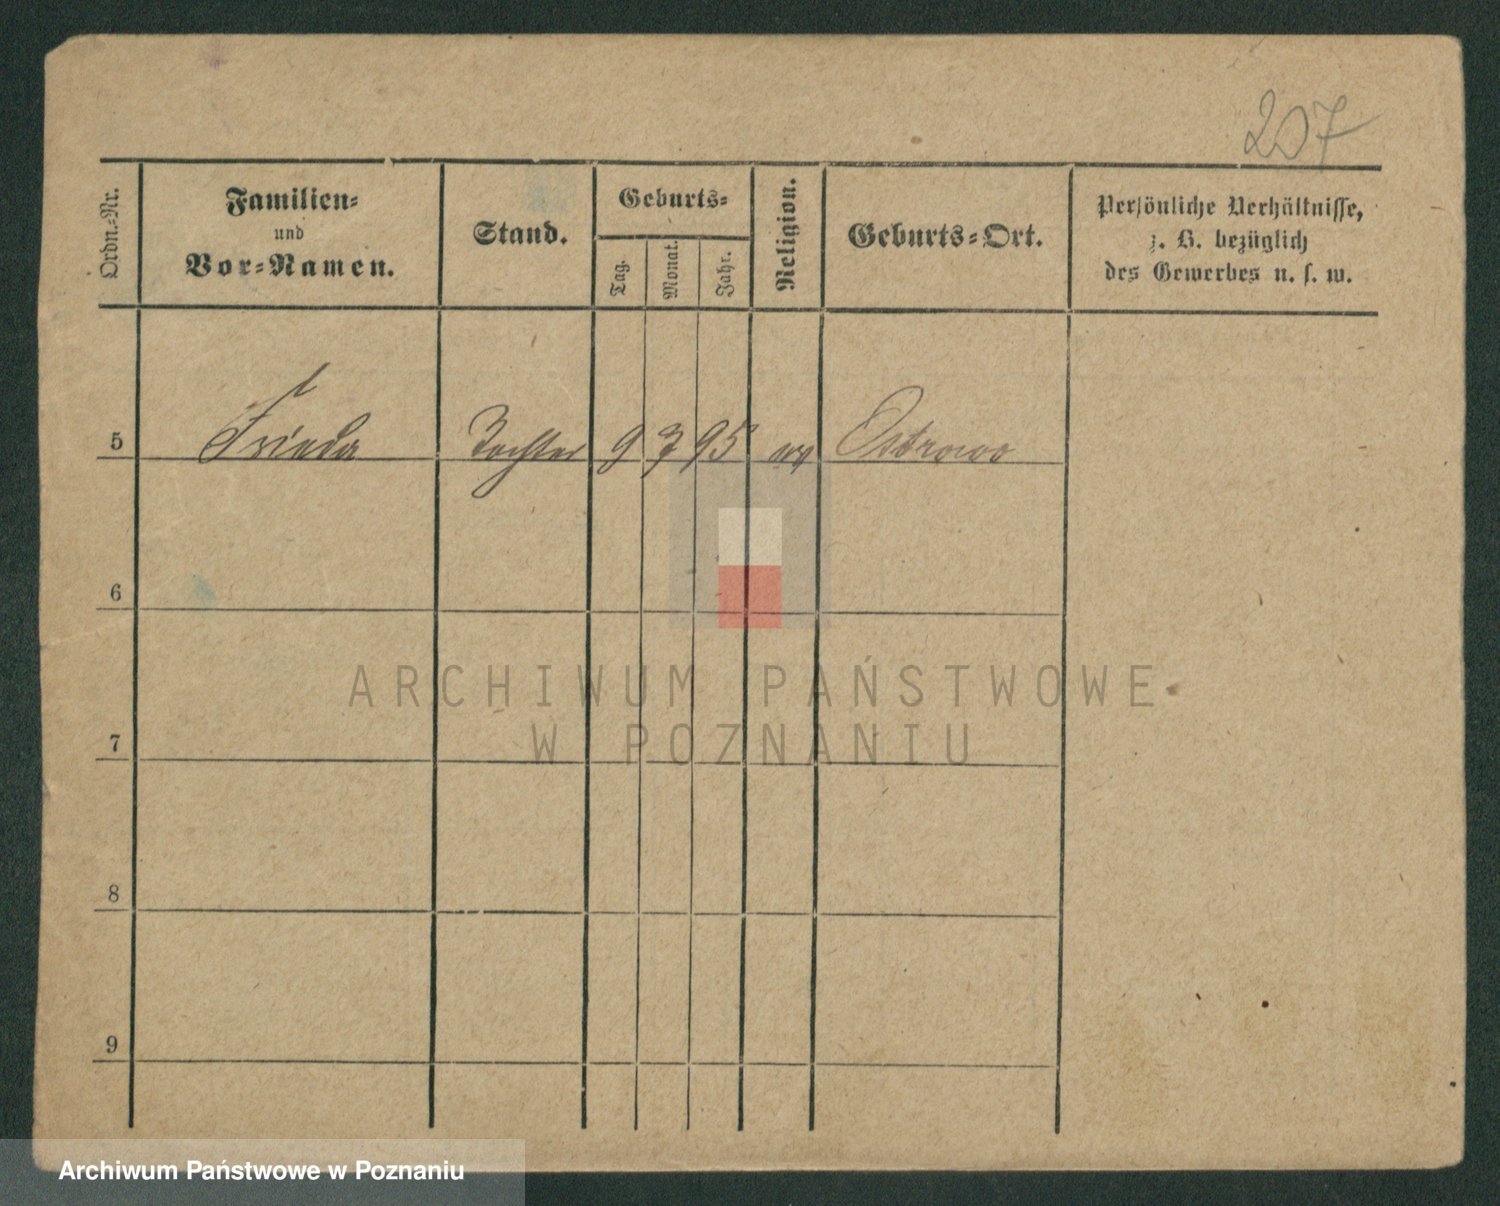 207
Ordn.-Nr.
Familien-
und
Vor-Namen.
Stand.
Geburts-
Tag.
Monat.
Jahr.
Religion.
Geburts-Ort.
Persönliche Verhältnisse,
z. B. bezüglich
des Gewerbes u. s. w.
5 Frieda Tochter 9 7 95 ev Ostrowo
6
7
8
9
ARCHIWUM PAŃSTWOWE
W POZNANIU
Archiwum Państwowe w Poznaniu